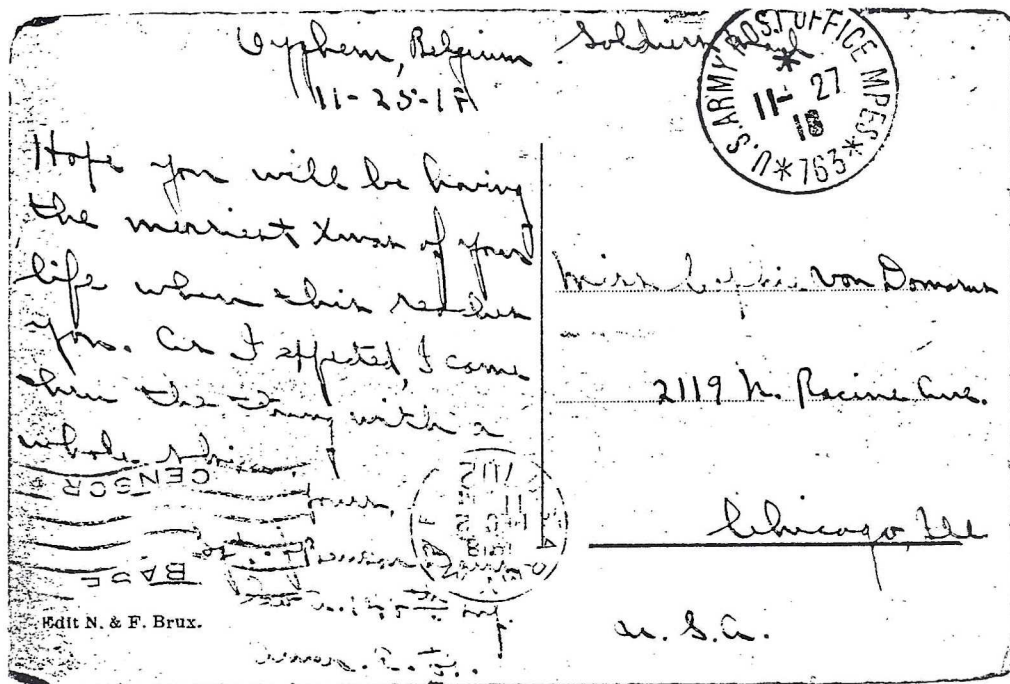 Belgium
11-25-18
Soldiers
U.S. ARMY POST OFFICE MPES
*763*
11- 27
18
Hope you will be having
the merriest Xmas of your
life when this reaches
you. As I expected, I came
thru the with a
whole
Yours,
CENSOR
BASE
Edit N. & F. Brux.
Miss Sophie Von Domarus
2119 N. Racine Ave.
Chicago, Ill
U. S. A.